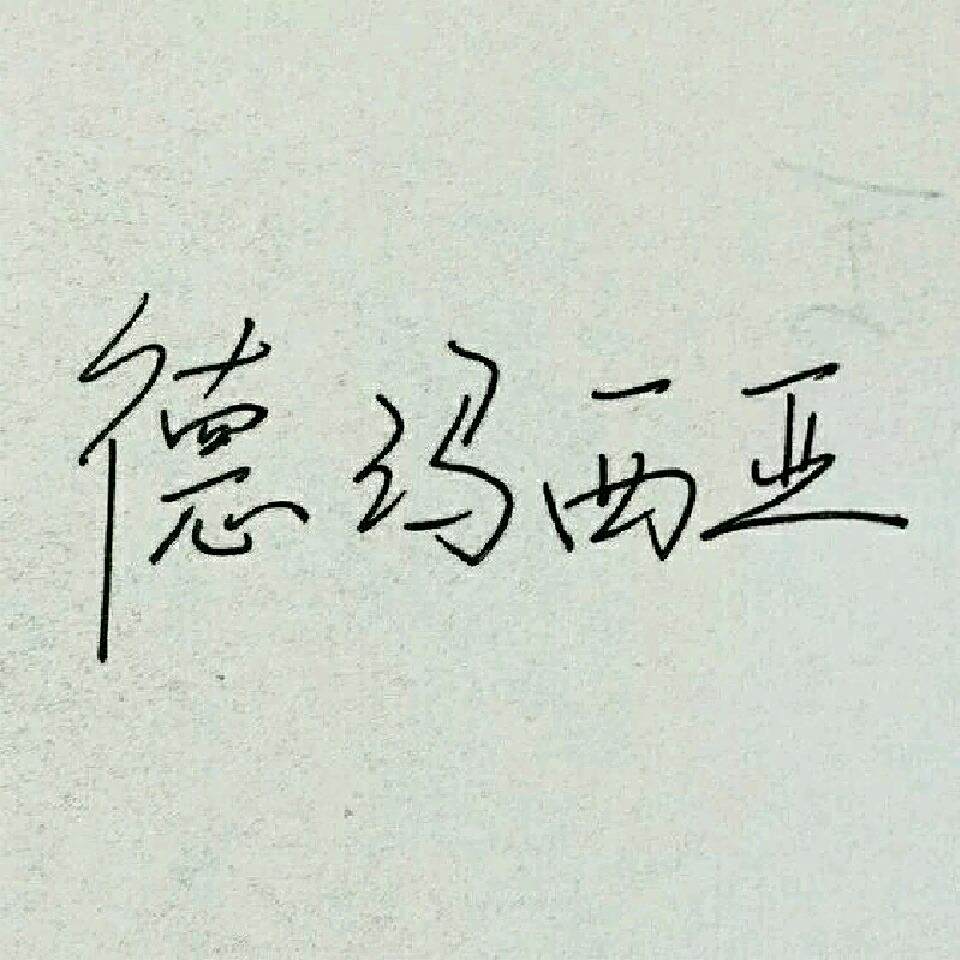 德玛西亚